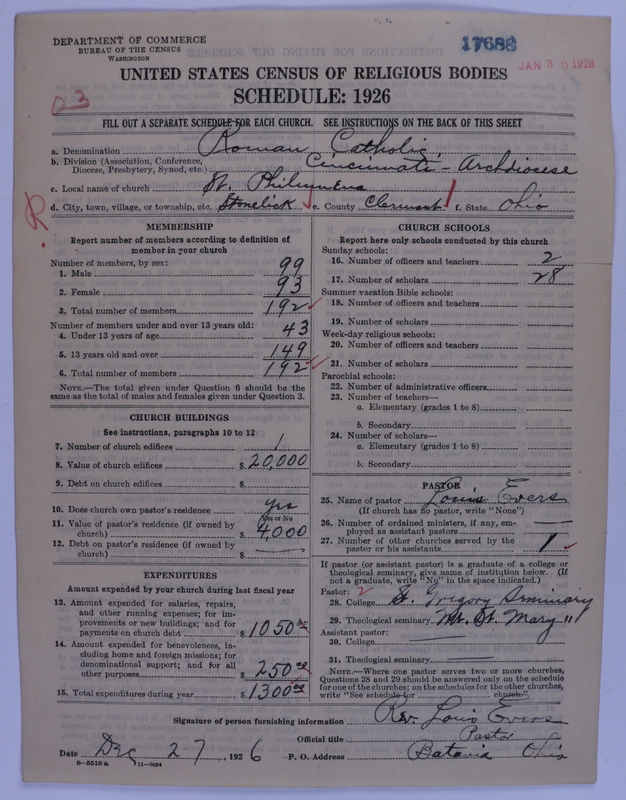 DEPARTMENT OF COMMERCE
BUREAU OF THE CENSUS
WASHINGTON
17688
JAN 30 1928
UNITED STATES CENSUS OF RELIGIOUS BODIES
SCHEDULE: 1926
03
FILL OUT A SEPARATE SCHEDULE FOR EACH CHURCH. SEE INSTRUCTIONS ON THE BACK OF THIS SHEET
a. Denomination Roman Catholic
b. Division (Association, Conference, Diocese, Presbytery, Synod, etc.) Cincinnati - Archdiocese
c. Local name of church St. Philumena
R.
d. City, town, village, or township, etc. Stonelick e. County Clermont f. State Ohio
MEMBERSHIP
Report number of members according to definition of
member in your church
Number of members, by sex:
1. Male 99
2. Female 93
3. Total number of members 192
Number of members under and over 13 years old:
4. Under 13 years of age 43
5. 13 years old and over 149
6. Total number of members 192
NOTE.—The total given under Question 6 should be
same as the total of males and females given under Question 3.
CHURCH BUILDINGS
See instructions, paragraphs 10 to 12
7. Number of church edifices 1
8. Value of church edifices $ 20,000
9. Debt on church edifices $
10. Does church own pastor's residence yes
Yes or No
11. Value of pastor's residence (if owned by
church) $ 4,000
12. Debt on pastor's residence (if owned by
church) $ —
EXPENDITURES
Amount expended by your church during last fiscal year
13. Amount expended for salaries, repairs,
and other running expenses; for im-
provements or new buildings; and for
payments on church debt $ 1050
14. Amount expended for benevolences, in-
cluding home and foreign missions; for
denominational support; and for all
other purposes $ 250 00
15. Total expenditures during year $ 1300 00
CHURCH SCHOOLS
Report here only schools conducted by this church
Sunday schools:
16. Number of officers and teachers 2
17. Number of scholars 28
Summer vacation Bible schools:
18. Number of officers and teachers
19. Number of scholars
Week-day religious schools:
20. Number of officers and teachers
21. Number of scholars
Parochial schools:
22. Number of administrative officers
23. Number of teachers—
a. Elementary (grades 1 to 8)
b. Secondary
24. Number of scholars—
a. Elementary (grades 1 to 8)
b. Secondary
PASTOR
25. Name of pastor Louis Evers
(If church has no pastor, write "None")
26. Number of ordained ministers, if any, em-
ployed as assistant pastors —
27. Number of other churches served by the
pastor or his assistants 1
If pastor (or assistant pastor) is a graduate of a college or
theological seminary, give name of institution below. (If
not a graduate, write "No" in the space indicated.)
Pastor: 2
28. College St. Gregory Seminary
29. Theological seminary Mt. St. Mary "
Assistant pastor:
30. College —
31. Theological seminary —
NOTE.—Where one pastor serves two or more churches,
Questions 28 and 29 should be answered only on the schedule
for one of the churches; on the schedules for the other churches,
write "See schedule for church."
Signature of person furnishing information Rev. Louis Evers
Official title Pastor
Date Dec 27, 1926 P. O. Address Batavia Ohio
8-5518a 11-9064